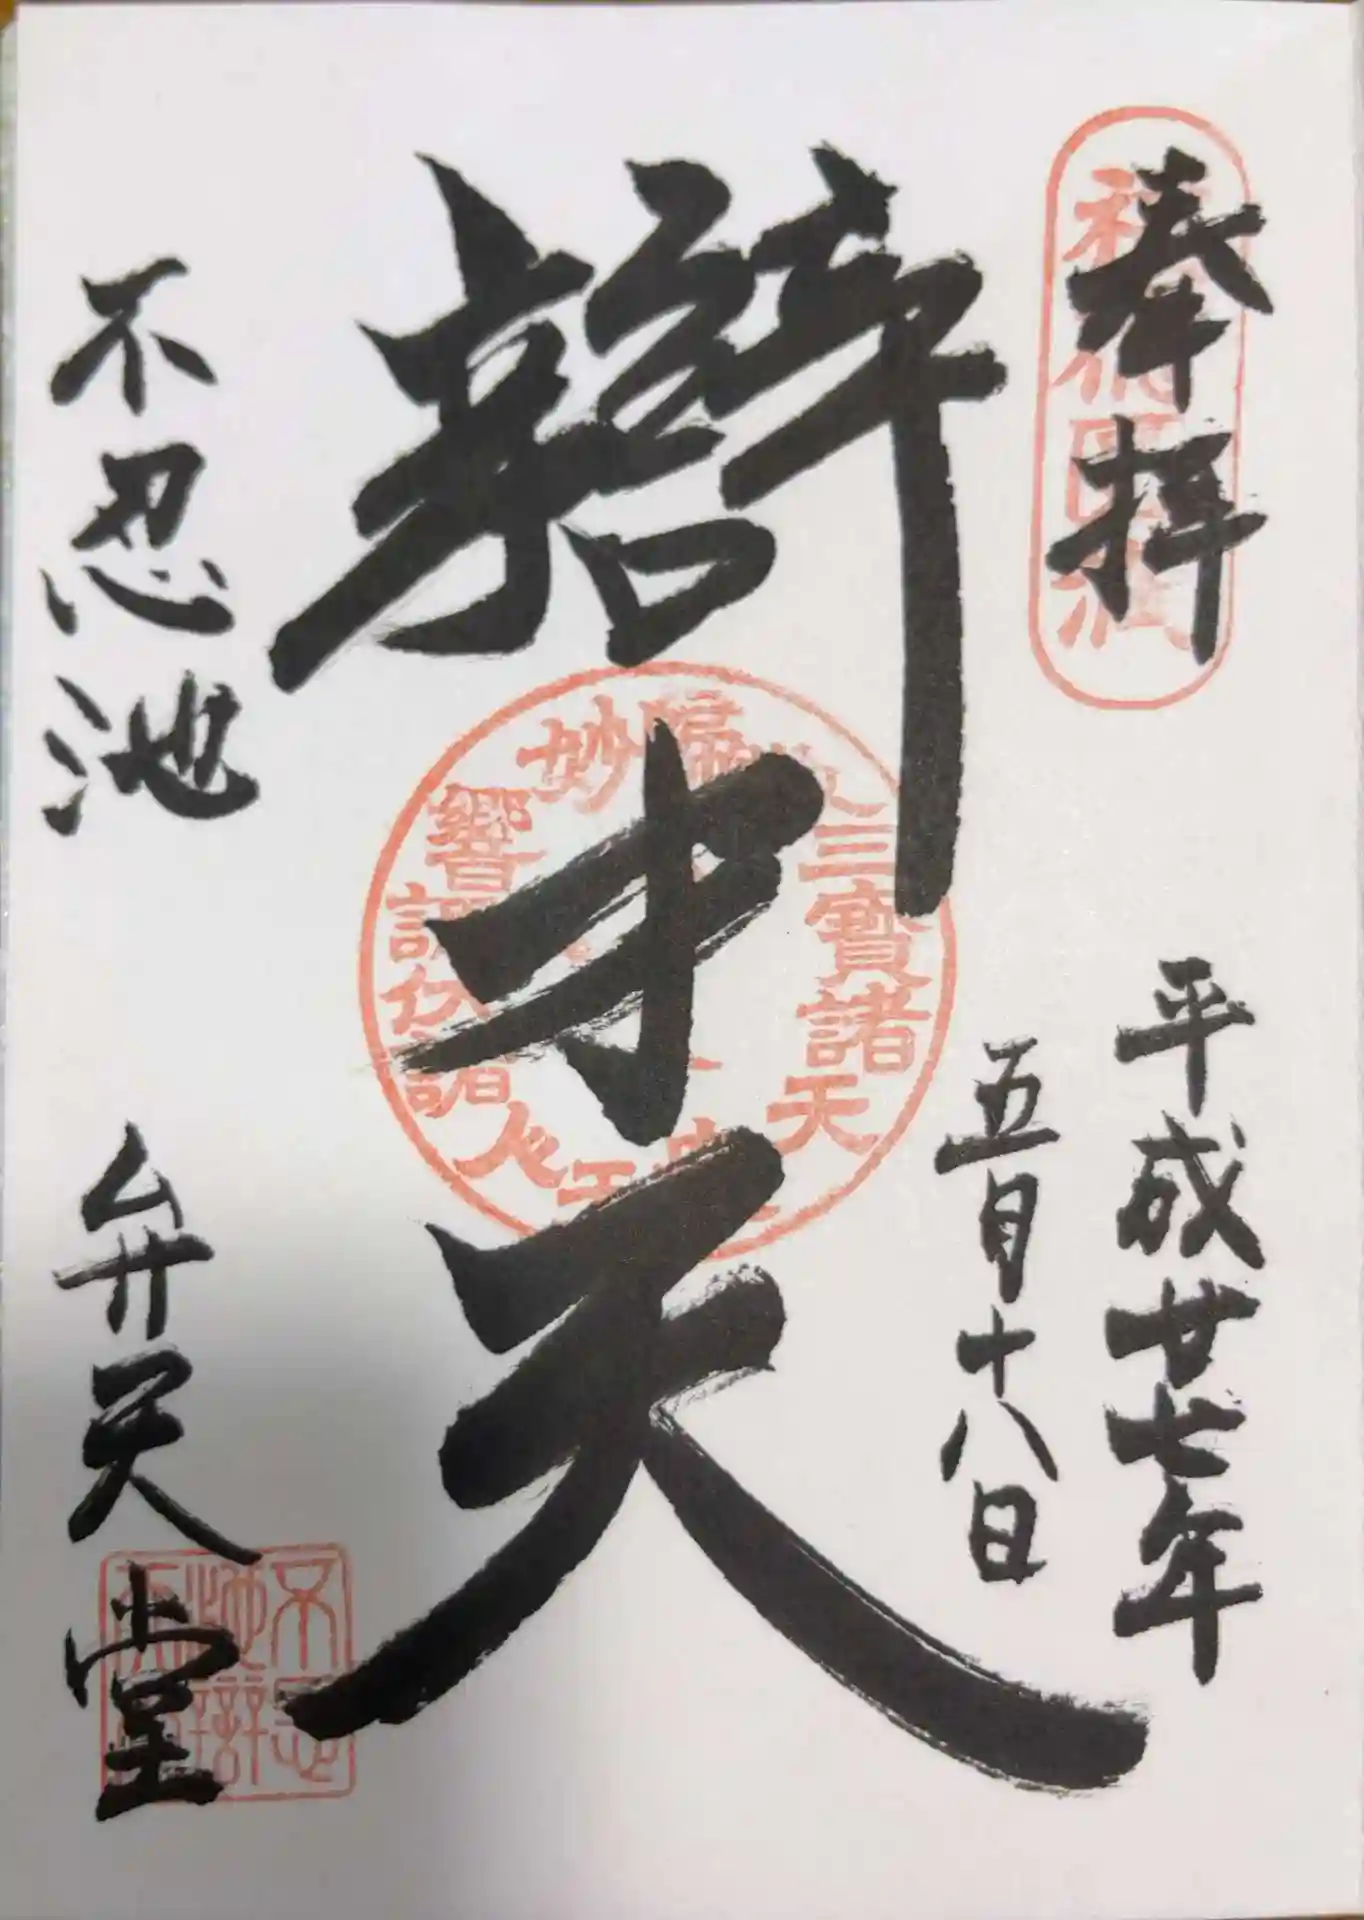 奉拝
平成廿七年
五月十八日
辯才天
三寶諸天
不忍池
弁天堂